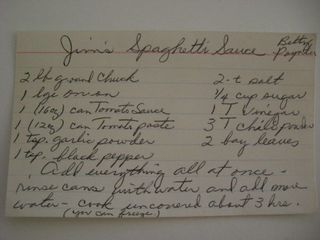 Jim's Spaghetti Sauce Betty Poynter
2 lb ground chuck 2 t salt
1 lge onion 1/4 cup sugar
1 (16oz) can Tomato Sauce 1 T vinegar
1 (12oz) can Tomato paste 3 T chili powder
1 tsp. garlic powder 2 bay leaves
1 tsp. black pepper
Add everything all at once -
rinse cans with water and add more
water - cook uncovered about 3 hrs.
(you can freeze)